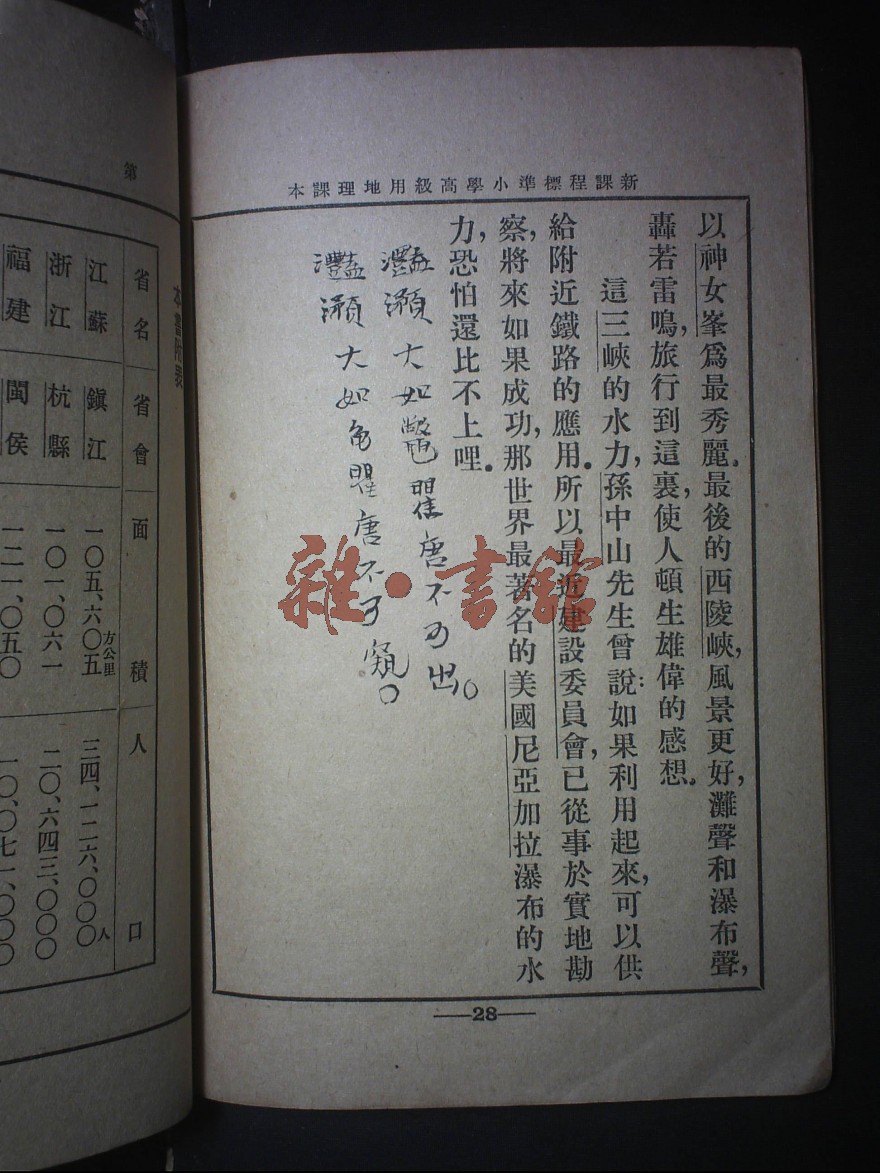 新課程標準小學高級用地理課本
以神女峯爲最秀麗。最後的西陵峽，風景更好，灘聲和瀑布聲，
轟若雷鳴，旅行到這裏，使人頓生雄偉的感想。
這三峽的水力，孫中山先生曾說：如果利用起來，可以供
給附近鐵路的應用。所以最近建設委員會，已從事於實地勘
察，將來如果成功，那世界最著名的美國尼亞加拉瀑布的水
力，恐怕還比不上哩。
灩澦大如鼈瞿唐不可出。
灩澦大如龟瞿唐不可窺。
28
雜·書館
第
省名 省會 面積 人口
江蘇 鎮江 一〇五、六〇五方公里 三四、一二六、〇〇〇人
浙江 杭縣 一〇一、〇六一 二〇、六四三、〇〇〇
福建 閩侯 一二一、〇五〇 一〇、〇七一、〇〇〇
本書附表